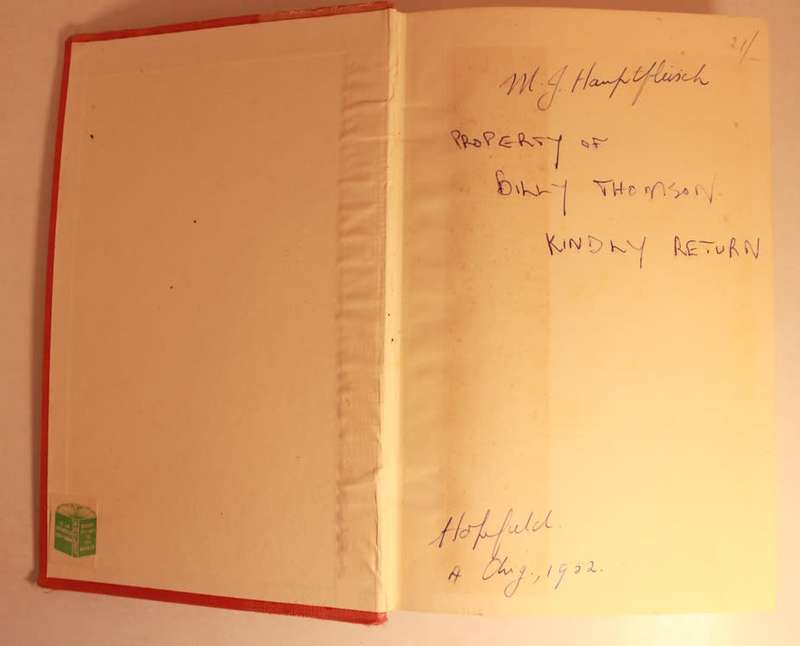 21/-
M. J. Hauptfleisch
PROPERTY OF
BILLY THOMSON.
KINDLY RETURN
Hopefield.
Aug., 1952.